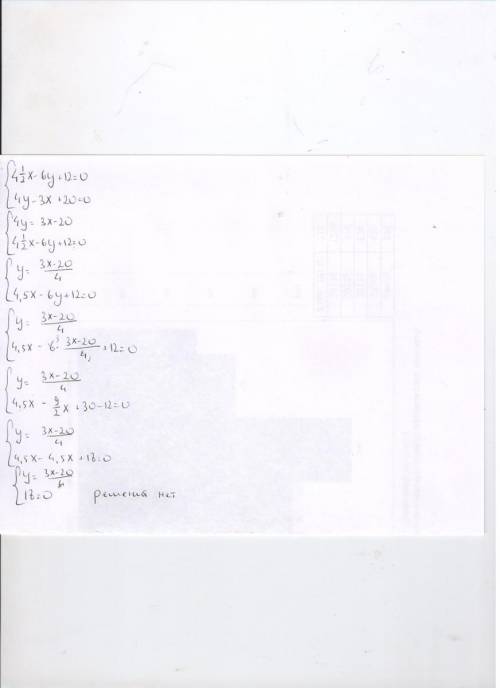 4 1/2 x - 6y + 12 = 0
4y - 3x + 20 = 0
4y = 3x - 20
4 1/2 x - 6y + 12 = 0
y = (3x - 20)/4
4,5x - 6y + 12 = 0
y = (3x - 20)/4
4,5x - 6³ · (3x - 20)/4₂ + 12 = 0
y = (3x - 20)/4
4,5x - 9/2 x + 30 - 12 = 0
y = (3x - 20)/4
4,5x - 4,5x + 18 = 0
y = (3x - 20)/4
18 = 0 решений нет